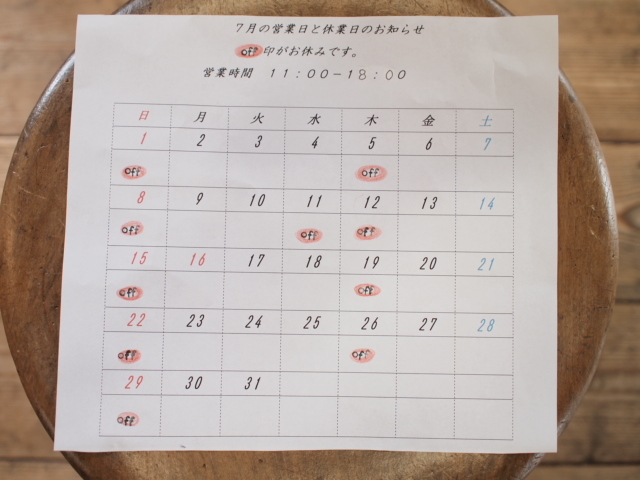 7月の営業日と休業日のお知らせ
off 印がお休みです。
営業時間 11:00-18:00
日 月 火 水 木 金 土
1 2 3 4 5 6 7
off off
8 9 10 11 12 13 14
off off off
15 16 17 18 19 20 21
off off
22 23 24 25 26 27 28
off off
29 30 31
off